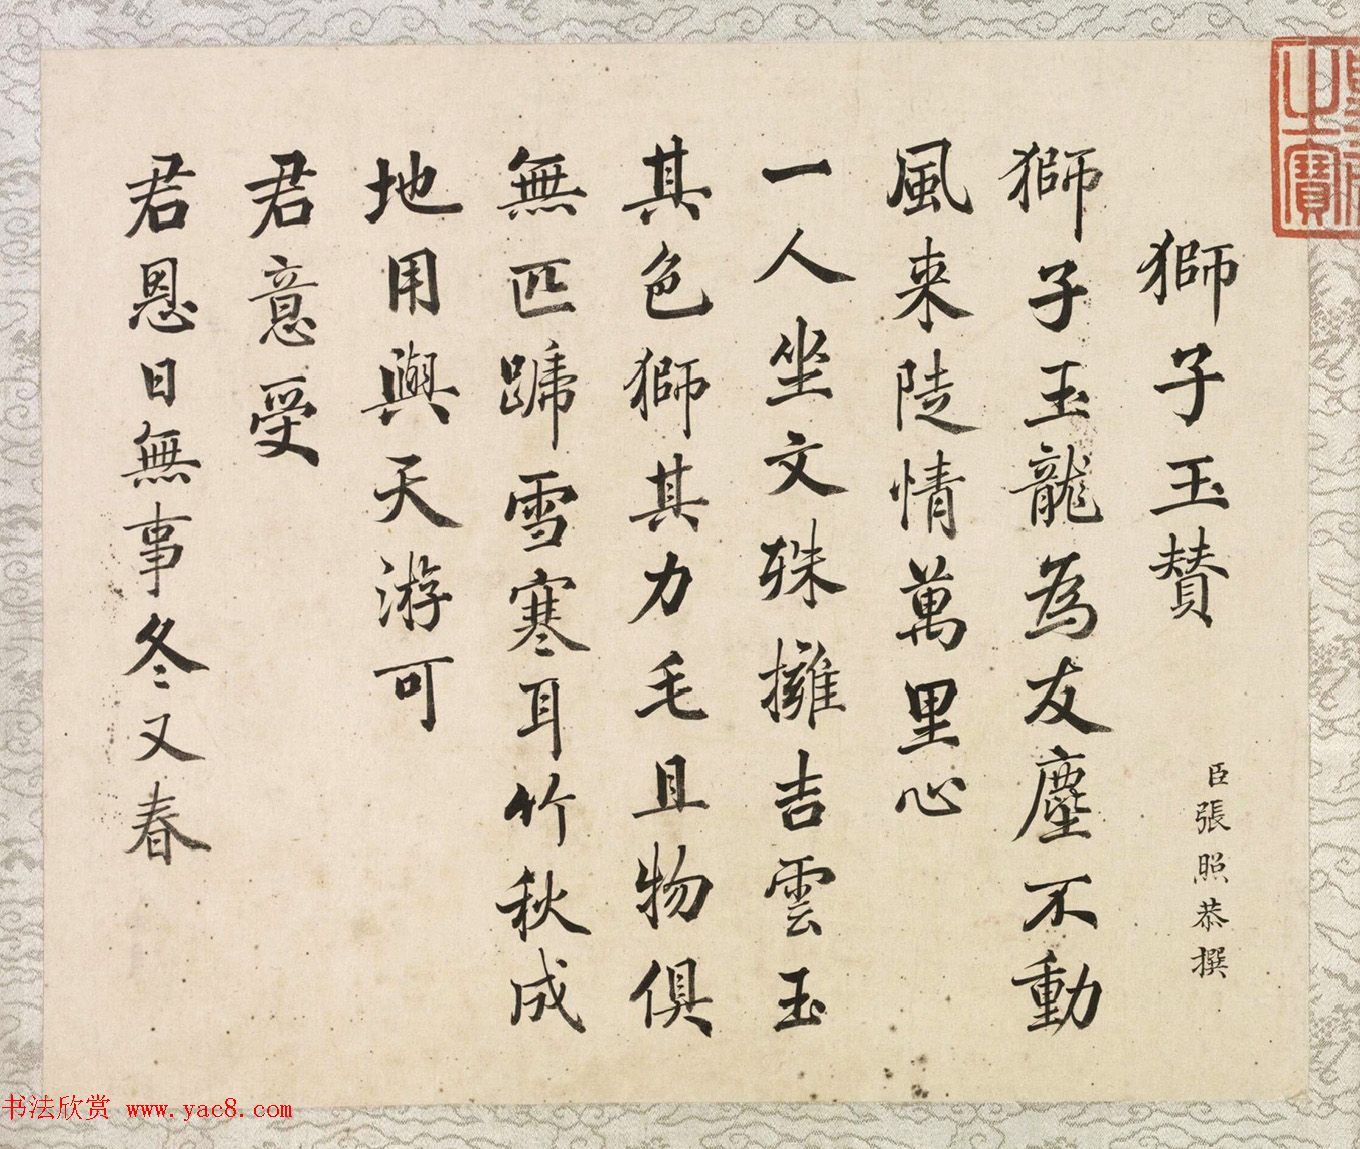 獅子玉贊
臣張照恭撰
獅子玉龍為友塵不動
風来陡情萬里心
一人坐文殊擁吉雲玉
其色獅其力毛且物俱
無匹蹏雪寒耳竹秋成
地用與天游可
君意受
君恩日無事冬又春
之寶
书法欣赏 www.yac8.com